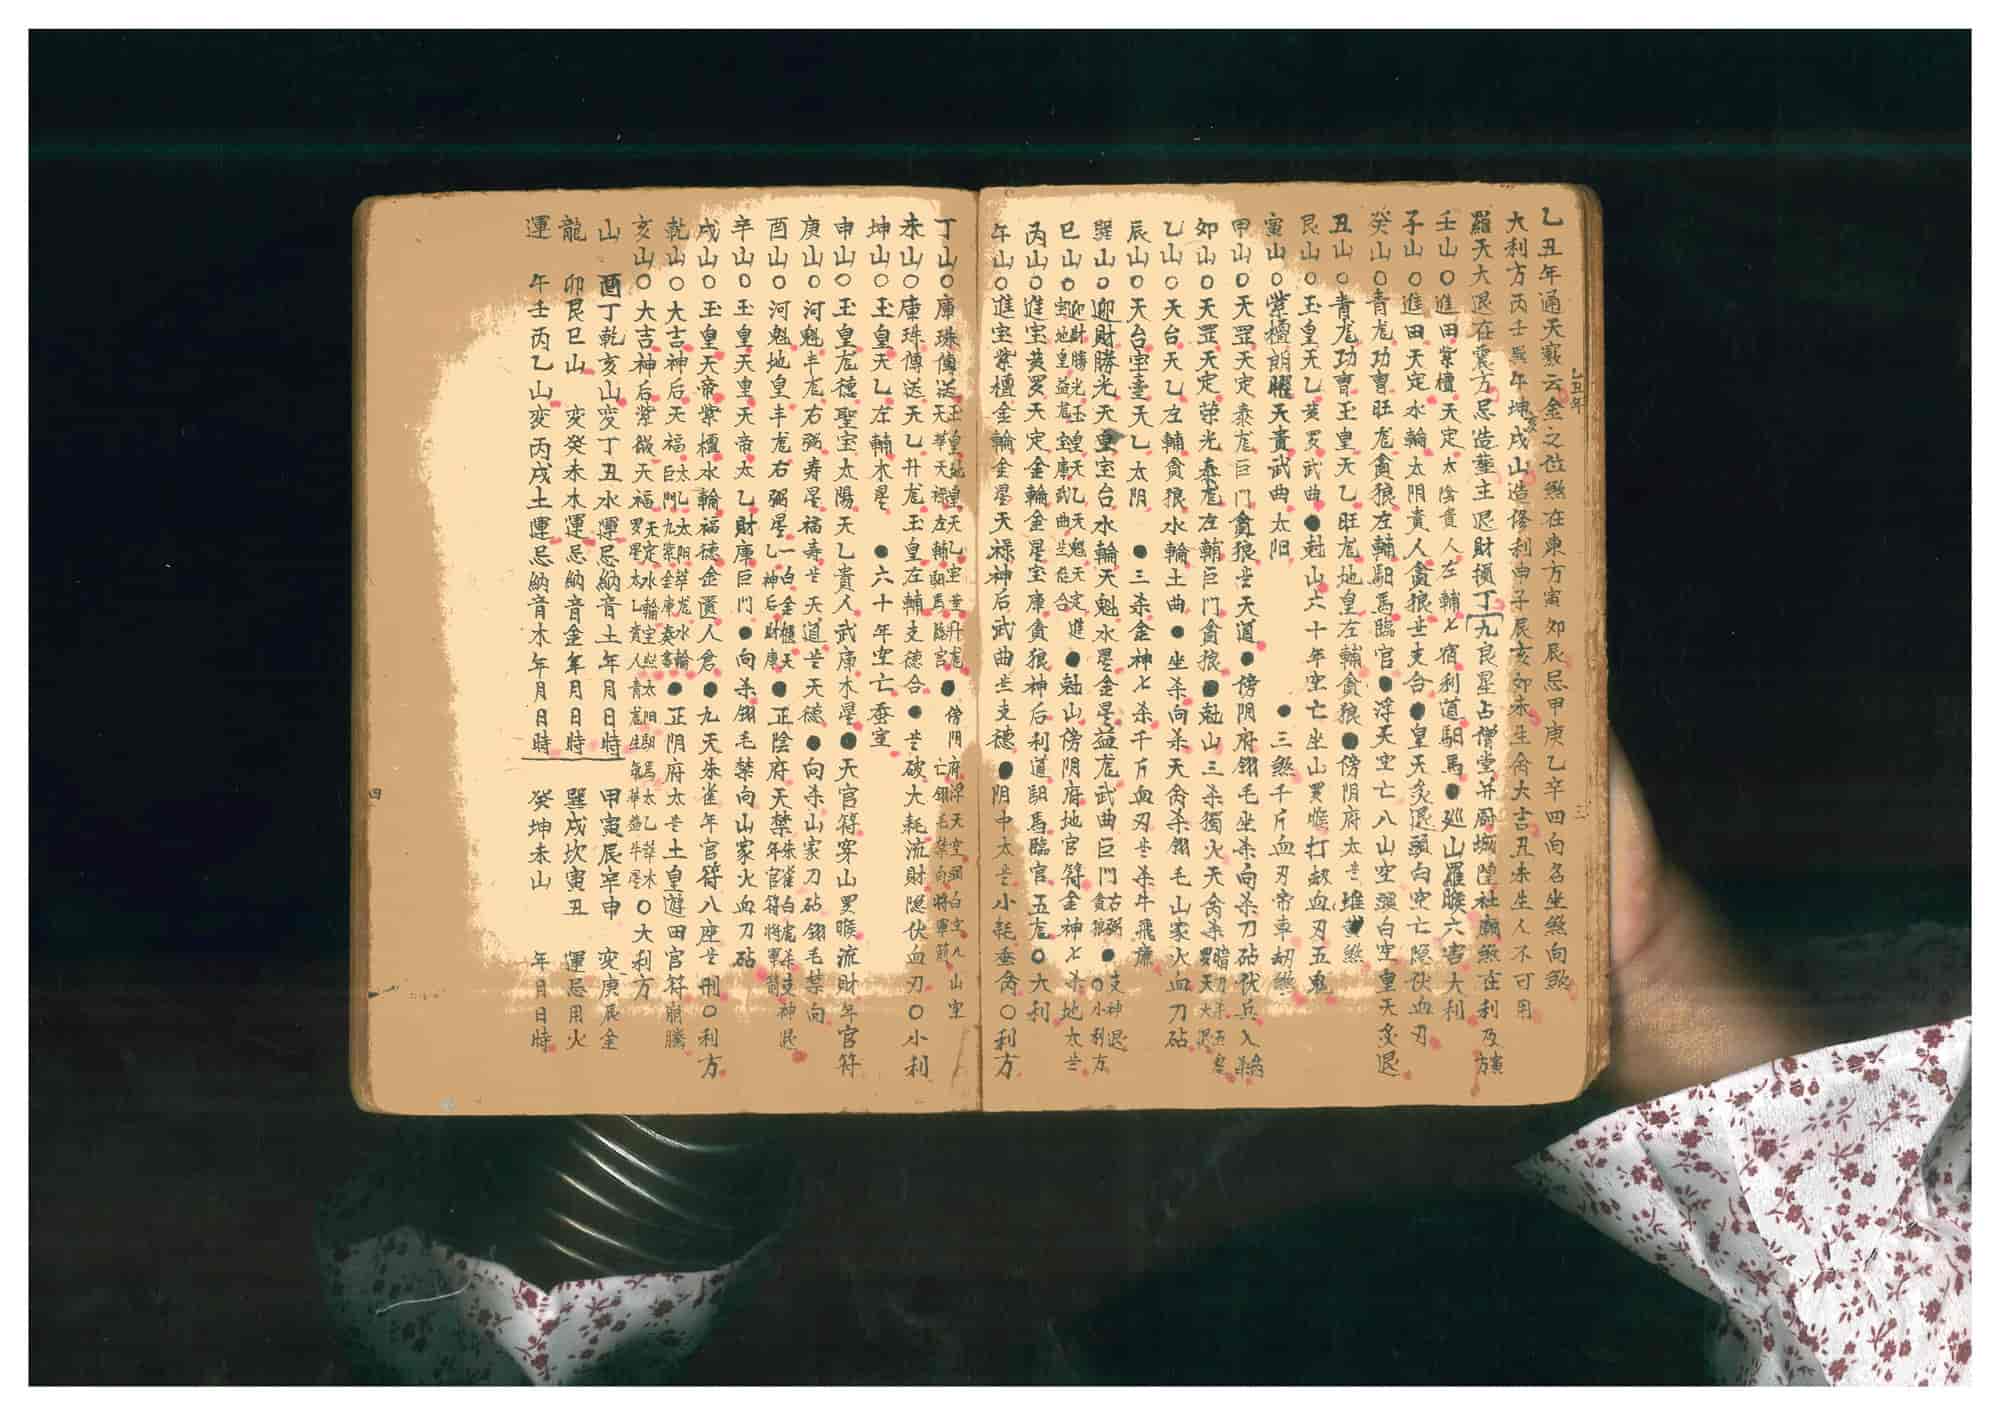 乙丑年通天竅云金之位煞在東方寅卯辰忌甲庚乙辛四向名坐煞向煞
乙丑年
三
大利方丙壬巽午坤戌山造修利申子辰亥卯未生命大吉丑未生人不可用
羅天大退在震方忌造塟主退財損丁九良星占僧堂井厨城隍社廟煞在利及寅方
壬山○進田紫檀天定太陰貴人左輔七宿利道馹馬●巡山羅睺六害大利
子山○進田天定水輪太阴貴人貪狼支合●皇天炙退頭白空亡隐伏血刃
癸山○青龙功曹旺龙貪狼左輔馹馬臨官●浮天空亡八山空頭白空皇天炙退
丑山○青龙功曹玉皇天乙旺龙地皇左輔貪狼●傍阴府太歲堆黄煞
艮山○玉皇天乙黄罗武曲●尅山六十年空亡坐山罗睺打劫血刃五鬼
寅山○紫檀朗曜天貴武曲太阳●三煞千斤血刃帝車劫煞
甲山○天罡天定泰龙巨门貪狼歲天道●傍阴府翎毛坐杀向杀刀砧伏兵
卯山○天罡天定荣光泰龙左輔巨门貪狼●尅山三杀獨火天禽杀
乙山○天台天乙左輔貪狼水輪土曲●坐杀向杀天禽杀翎毛山家火血刀砧
辰山○天台宝臺天乙太阴●三杀金神七杀千斤血刃歲杀牛飛廉
巽山○迎財勝光天皇宝台水輪天魁水星金星益龙武曲巨门貪狼右弼●支神退○小利方
巳山○迎財勝光玉皇天乙天魁天定進宝地皇益龙宝庫武曲歲位合●尅山傍阴府地官符金神七杀地太歲
丙山○進宝黄罗天定金輪金星宝庫貪狼神后利道馹馬臨官●五龙○大利
午山○進宝紫檀金輪金星天禄神后武曲歲支德●阴中太歲小耗垂禽○利方
丁山○庫珠傳送玉皇地皇天乙宝臺升龙天華天禄左輔馹馬臨官●傍阴府浮天空頭白空八山空亡翎毛禁向將軍箭
未山○庫珠傳送天乙升龙玉皇左輔支德合●歲破大耗流財隐伏血刃○小利
坤山○玉皇天乙左輔木星●六十年空亡蚕室
申山○玉皇龙德聖宝太陽天乙貴人武庫木星●天官符穿山罗睺流財年官符
庚山○河魁丰龙右弼寿星福寿歲天道歲天德●向杀山家刀砧翎毛禁向
酉山○河魁地皇丰龙右弼星一白金樻天乙神后財庫●正陰府天禁朱雀白虎杀支神退年官符將軍箭
辛山○玉皇天皇天帝太乙財庫巨门●向杀翎毛禁向山家火血刀砧
戌山○玉皇天帝紫檀水輪福德金匱人倉●九天朱雀年官符八座歲刑○利方
乾山○大吉神后天福太乙太阳萃龙水輪巨門九紫金庫●正阴府太歲土皇遊田官符崩騰
亥山○大吉神后紫微天福天定水輪宝台太阳馹馬太乙萃木罗星太乙貴人青龙生氣華益牛星○大利方
山　酉丁乾亥山变丁丑水運忌納音土年月日時　甲寅辰辛申　变庚辰金
龍　卯艮巳山　变癸未木運忌納音金年月日時　巽戌坎寅丑　運忌用火
運　午壬丙乙山变丙戌土運忌納音木年月日時　癸坤未山　年月日時
四